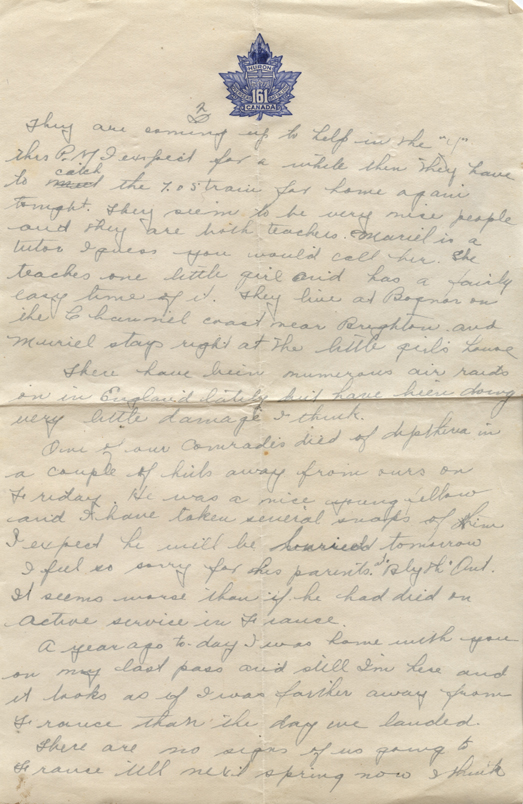 HURON
161
CANADA
2
They are coming up to help in the "Y"
this P.M I expect for a while then they have
to catch the 7.05 train for home again
tonight. They seem to be very nice people
and they are both teachers. Muriel is a
tutor I guess you would call her. She
teaches one little girl and has a fairly
easy time of it. They live at Bognor on
the Channel coast near Brighton and
Muriel stays right at the little girl's house
There have been numerous air raids
on in England lately but have been doing
very little damage I think.
One of our comrades died of diptheria in
a couple of huts away from ours on
Friday. He was a nice young fellow
and I have taken several snaps of him
I expect he will be burried tomorrow
I feel so sorry for his parents. at "Blyth" Ont.
It seems worse than if he had died on
active service in France.
A year ago to-day I was home with you
on my last pass and still I'm here and
it looks as if I was farther away from
France than the day we landed.
There are no signs of us going to
France till next spring now I think